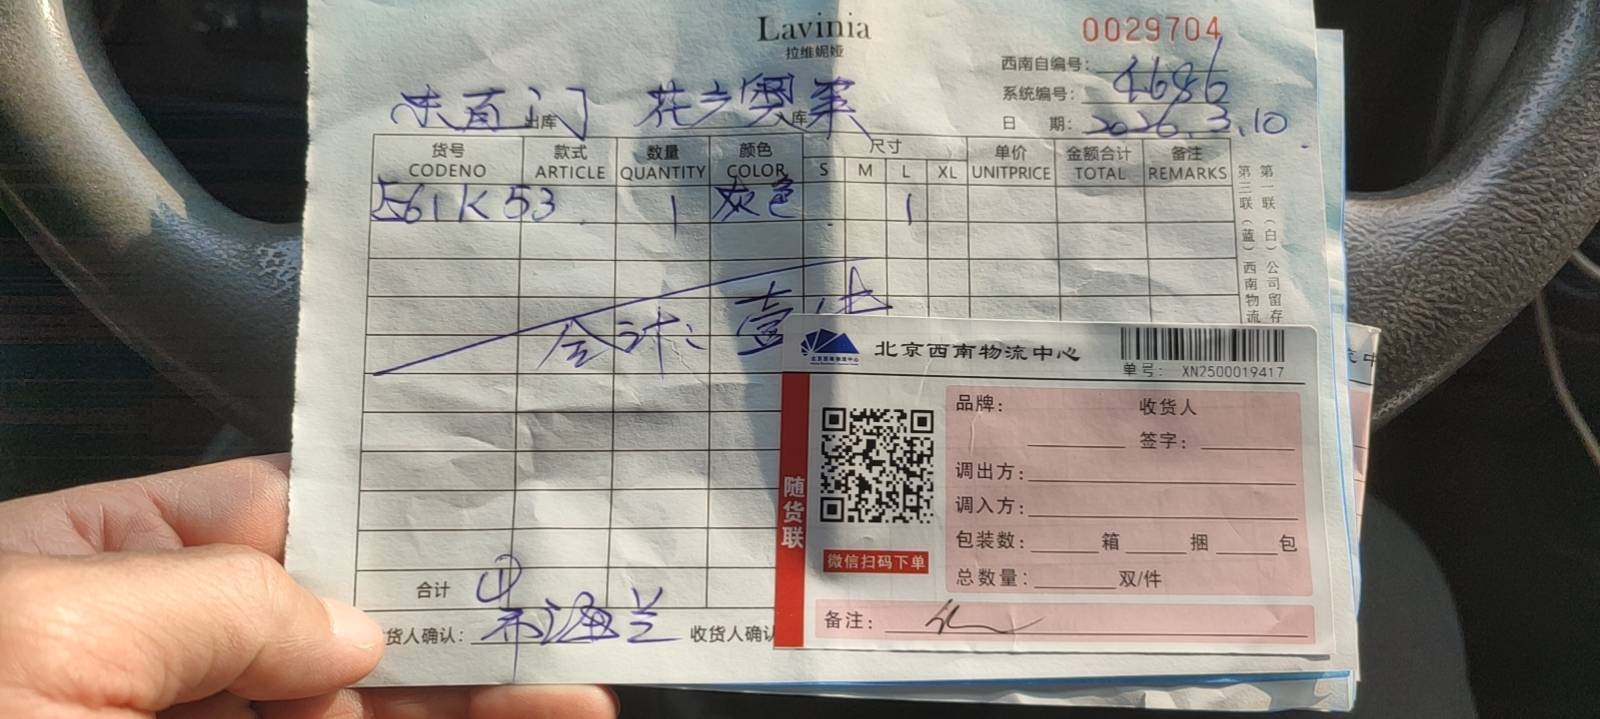 Lavinia
拉维妮娅
0029704
西南自编号：
系统编号：4686
日 期：2026.3.10
出库 入库
货号 款式 数量 颜色 尺寸 单价 金额合计 备注
CODENO ARTICLE QUANTITY COLOR S M L XL UNITPRICE TOTAL REMARKS
561K53 1 灰色 1
合计：壹件
合计 ①
货人确认： 收货人确认
第一联（白）公司留存
第三联（蓝）西南物流
北京西南物流中心
北京西南物流中心
单号： XN2500019417
随货联
微信扫码下单
品牌： 收货人
签字：
调出方：
调入方：
包装数： 箱 捆 包
总数量： 双/件
备注：